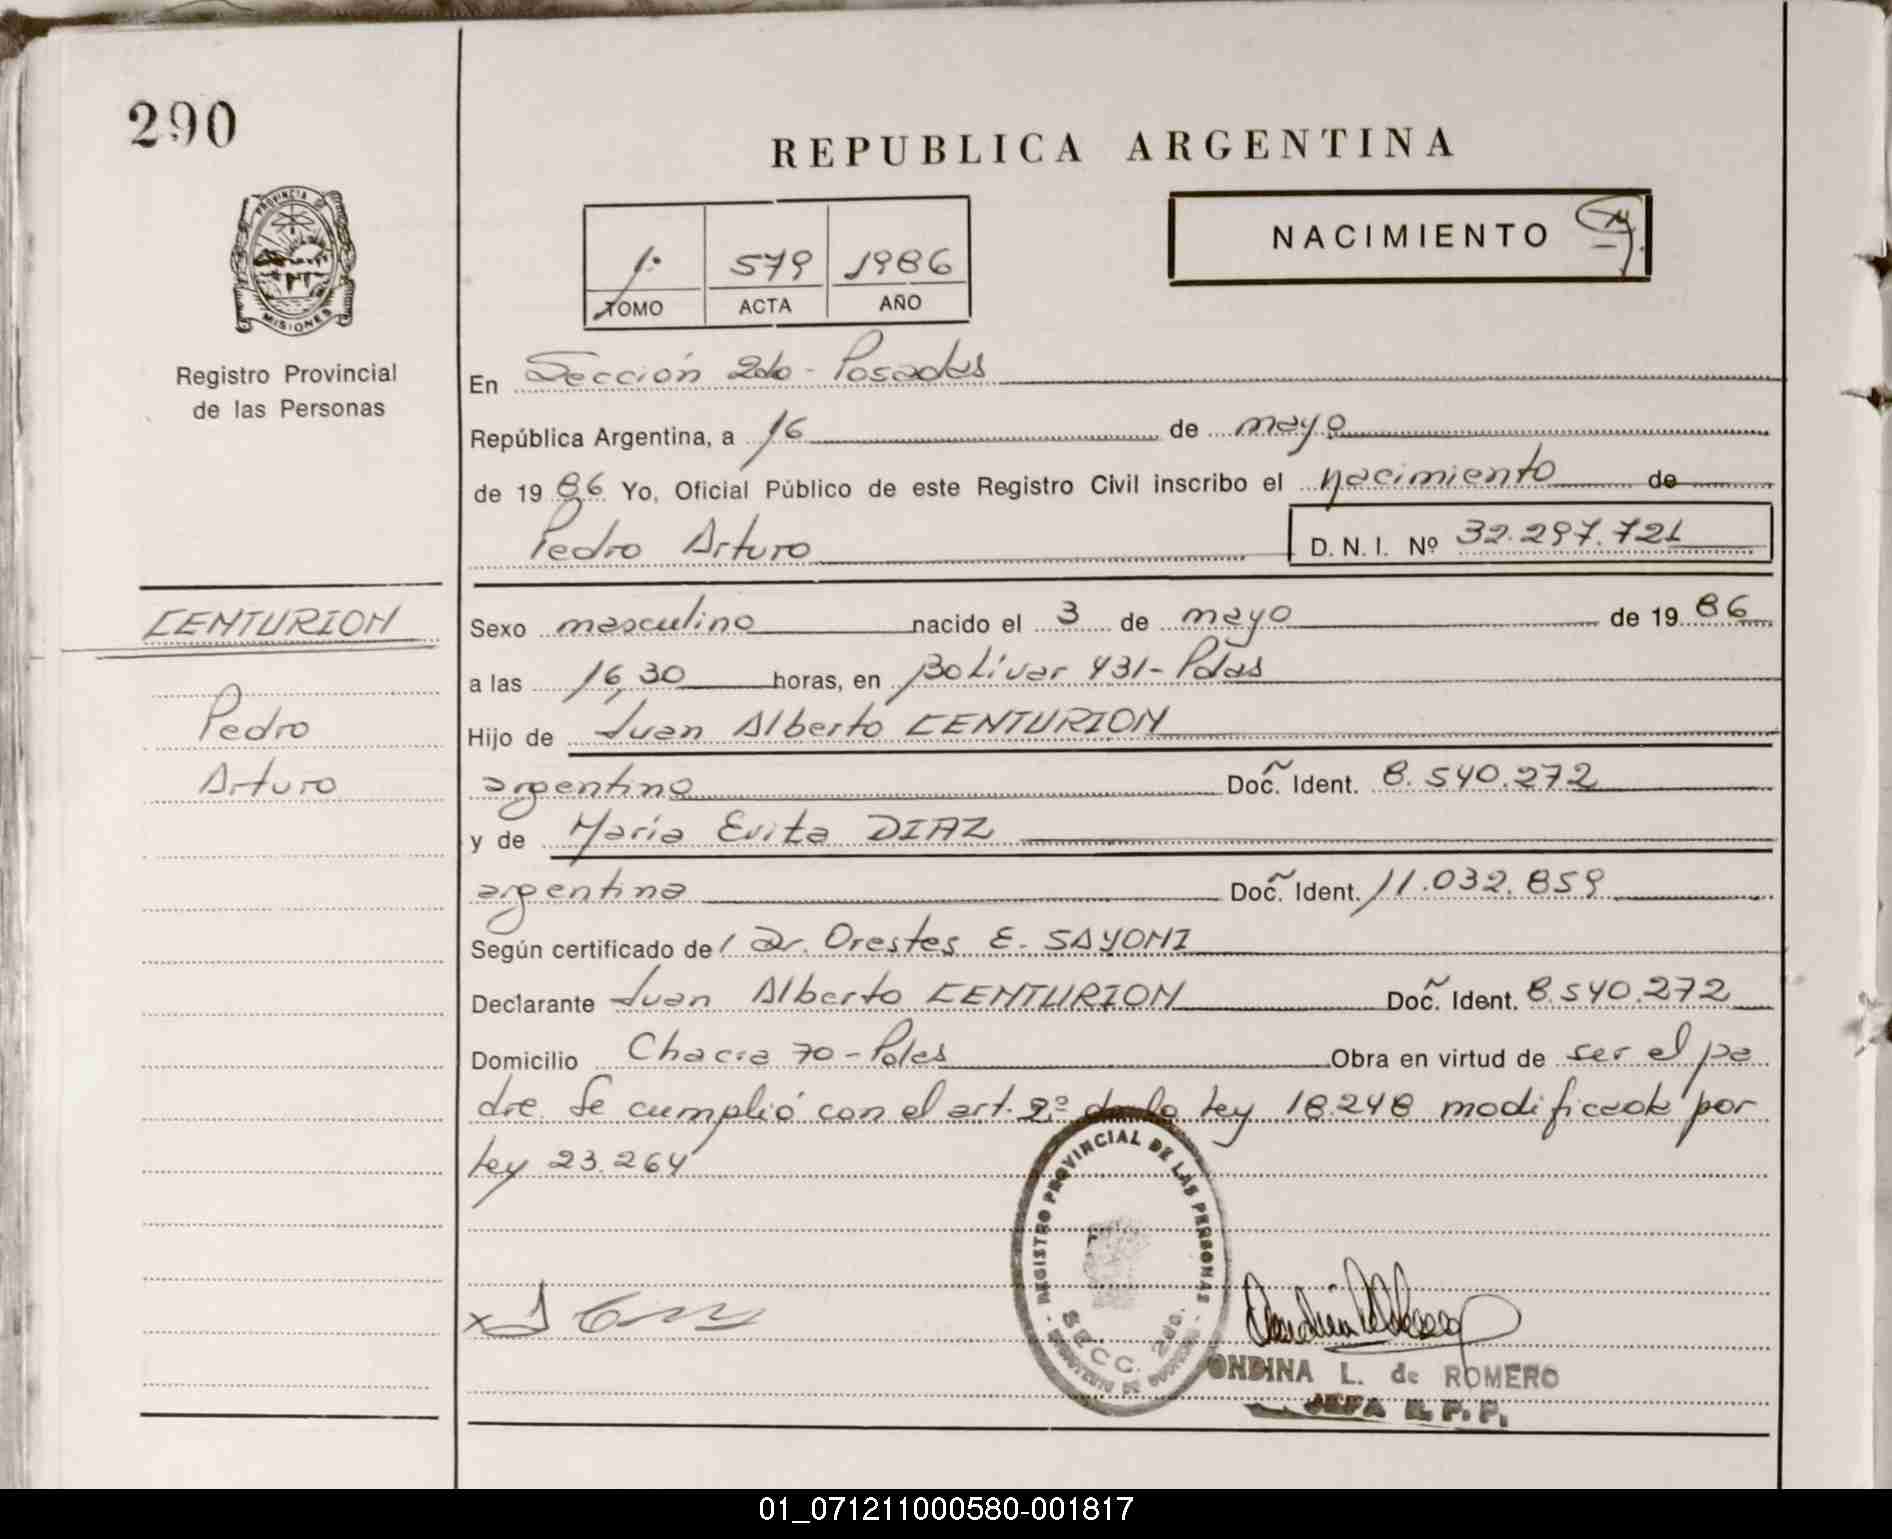 290
REPUBLICA ARGENTINA
PROVINCIA DE
MISIONES
Registro Provincial
de las Personas
1º 579 1986
TOMO ACTA AÑO
NACIMIENTO
En Sección 2do - Posadas
República Argentina, a 16 de mayo
de 1986 Yo, Oficial Público de este Registro Civil inscribo el nacimiento de
Pedro Arturo D. N. I. Nº 32.297.721
CENTURION
Pedro
Arturo
Sexo masculino nacido el 3 de mayo de 1986
a las 16,30 horas, en Bolívar 431 - Pdas
Hijo de Juan Alberto CENTURION
argentino Doc. Ident. 8.540.272
y de María Evita DIAZ
argentina Doc. Ident. 11.032.859
Según certificado de Dr. Orestes E. SAYONI
Declarante Juan Alberto CENTURION Doc. Ident. 8.540.272
Domicilio Chacra 70 - Pdas Obra en virtud de ser el pa
dre. Se cumplió con el art. 2º de la ley 18.248 modificada por
ley 23.264
REGISTRO PROVINCIAL DE LAS PERSONAS
SECC. 2da.
ONDINA L. de ROMERO
JEFA R. P. P.
01_071211000580-001817